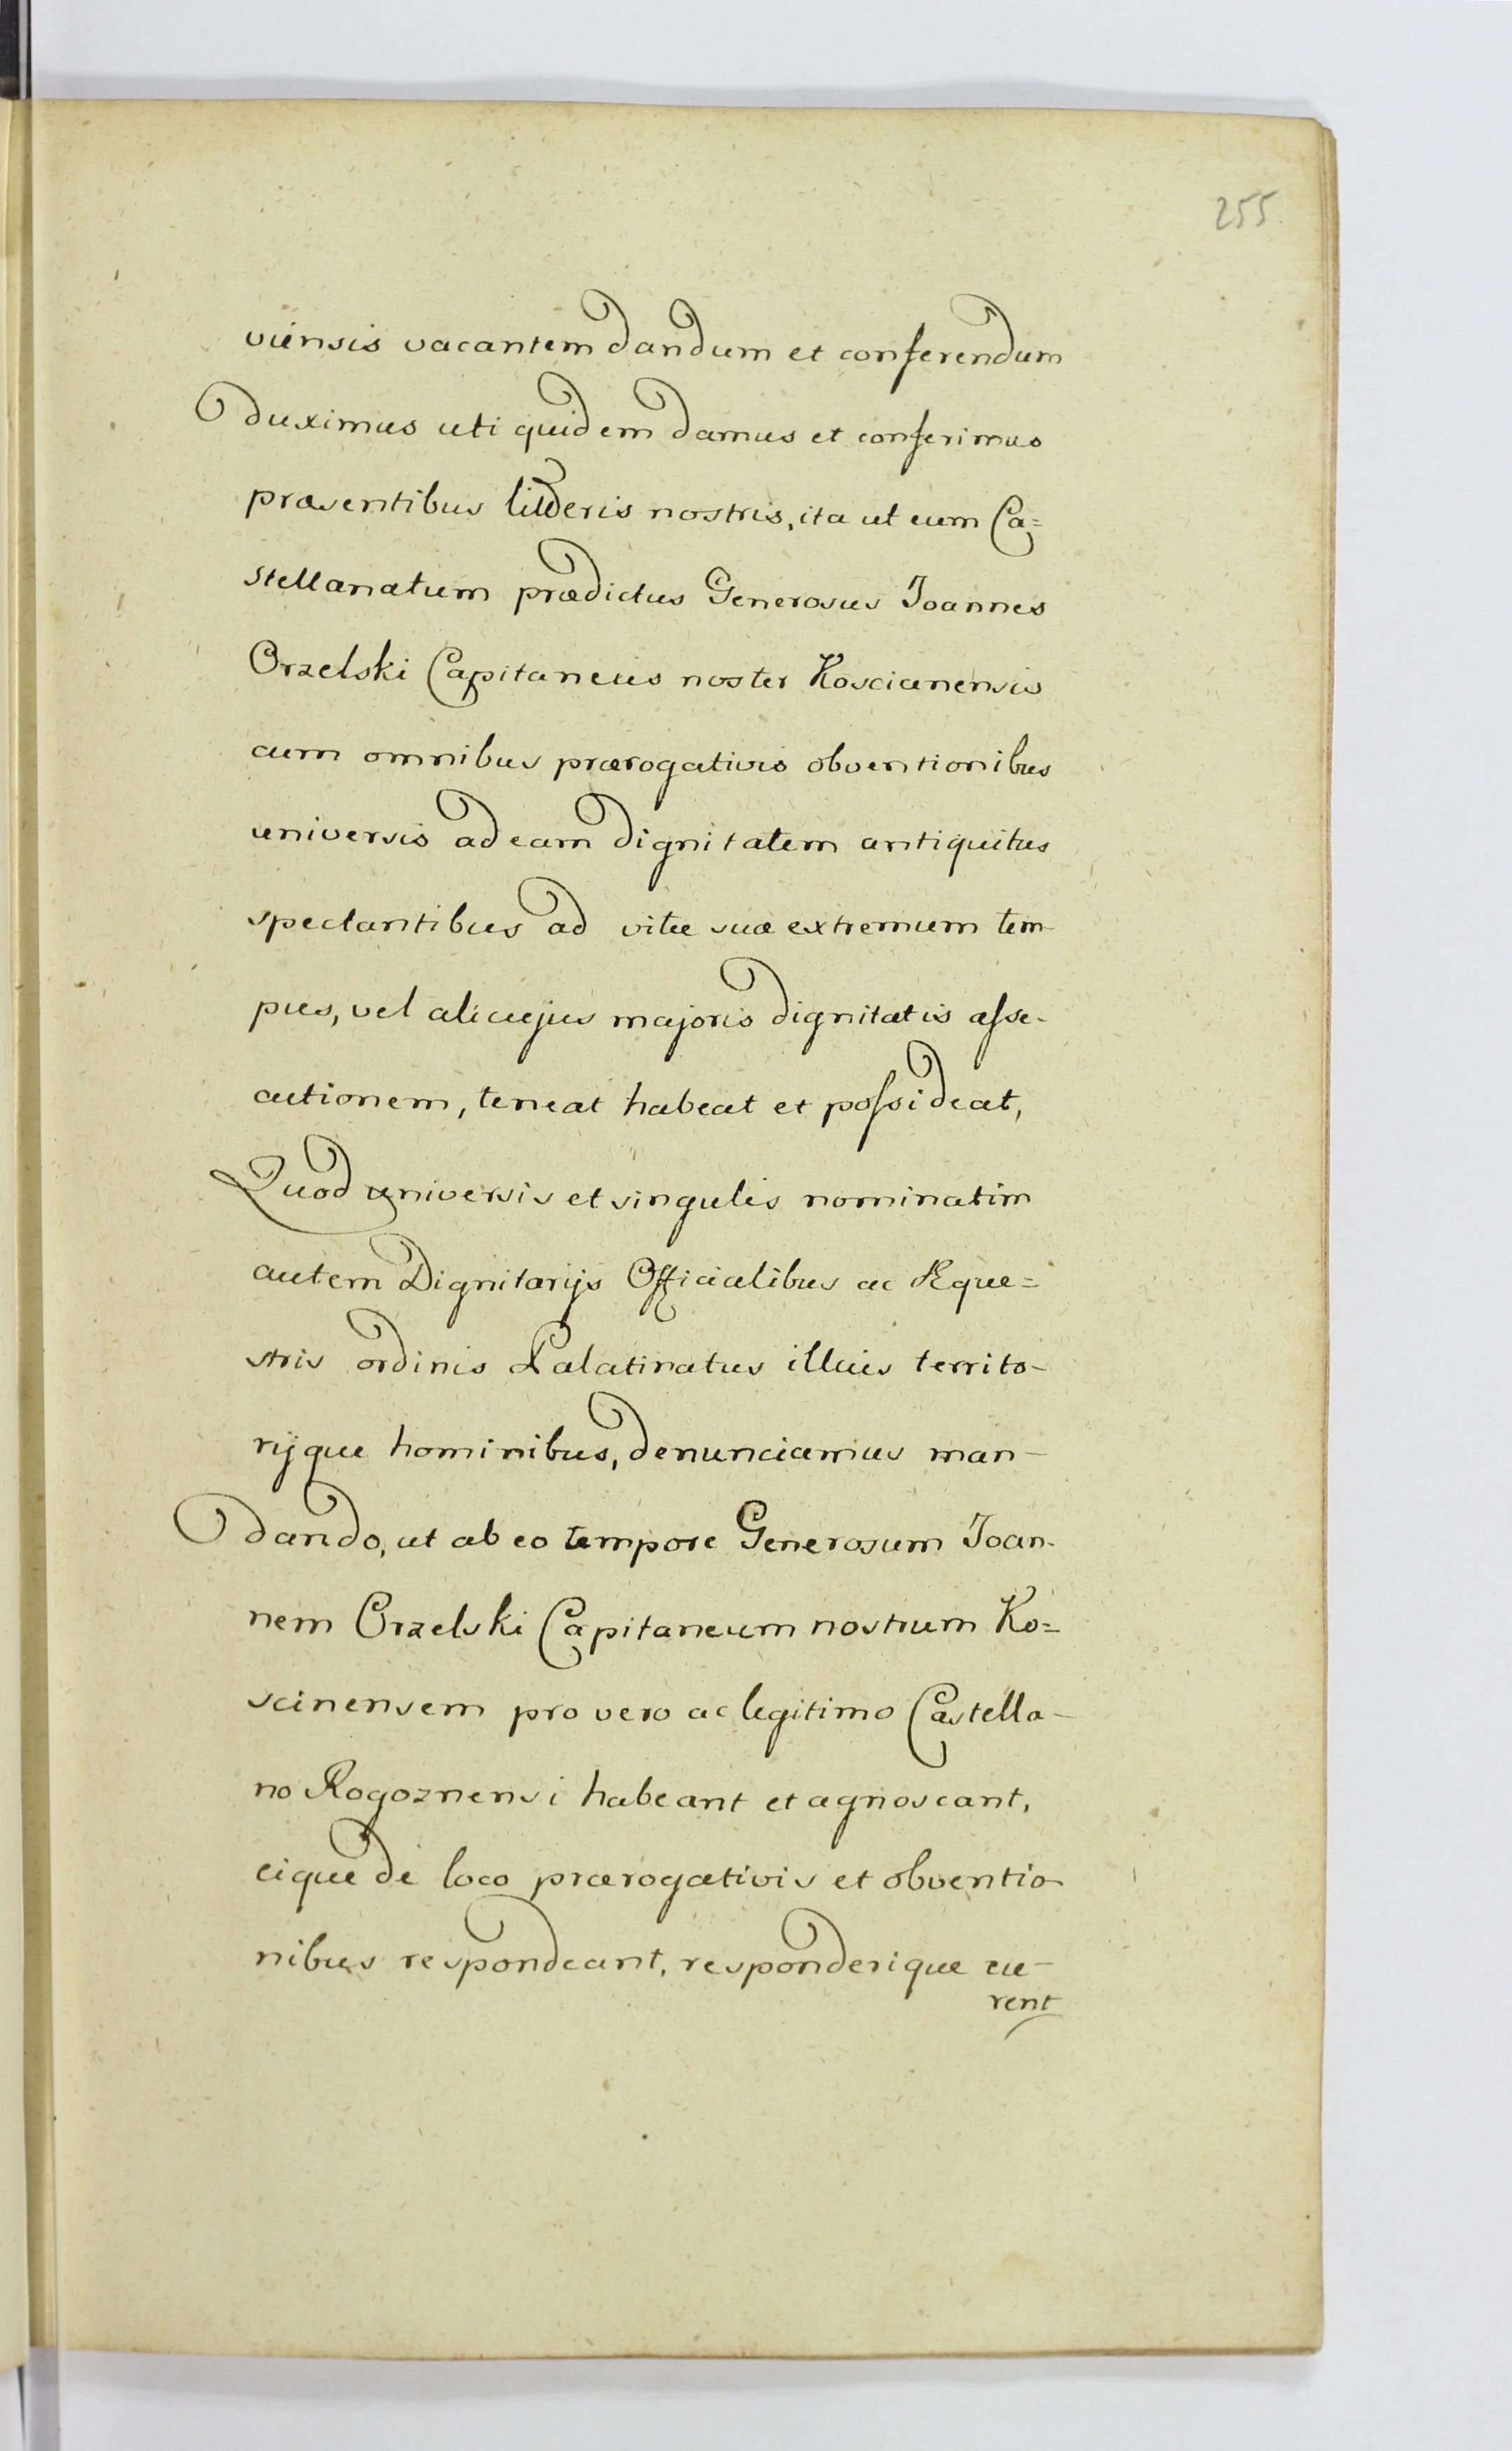 255
viensis vacantem dandum et conferendum
duximus uti quidem damus et conferimus
præsentibus litteris nostris, ita ut eum Ca=
stellanatum prædictus Generosus Joannes
Orzelski Capitaneus noster Koscianensis
cum omnibus prærogativis obventionibus
universis ad eam dignitatem antiquitus
spectantibus ad vitæ suæ extremum tem-
pus, vel alicujus majoris dignitatis asse-
cutionem, teneat habeat et possideat,
Quod universis et singulis nominatim
autem Dignitarijs Officialibus ac Eque=
stris ordinis Palatinatus illius territo-
rijque hominibus, denunciamus man-
dando, ut ab eo tempore Generosum Joan-
nem Orzelski Capitaneum nostrum Ko=
scinensem pro vero ac legitimo Castella-
no Rogoznensi habeant et agnoscant,
eique de loco prærogativis et obventio-
nibus respondeant, responderique cu-
rent